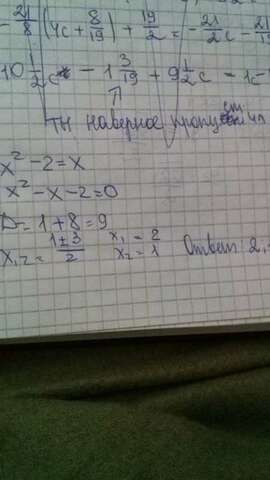 -21/8 (4c + 8/19) + 19/2 = -21/2 c - 21/19
10 1/2 c - 1 3/19 + 9 1/2 c - 1c -
ты наверное пропустил
x² - 2 = x
x² - x - 2 = 0
D = 1 + 8 = 9
x₁,₂ = 1±3/2 x₁ = 2 x₂ = 1 Ответ: 2,